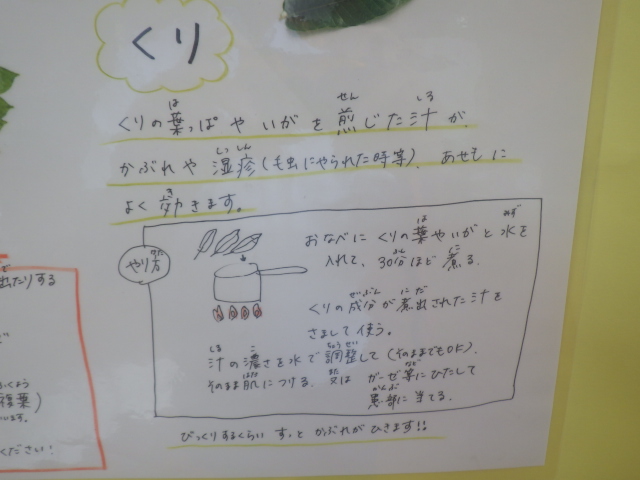 くり
くりの葉っぱやいがを煎じた汁が、
かぶれや湿疹(毛虫にやられた時等)、あせもに
よく効きます。
やり方
おなべにくりの葉やいがと水を
入れて、30分ほど煮る。
くりの成分が煮出された汁を
さまして使う。
汁の濃さを水で調整して(そのままでもOK)、
そのまま肌につける。又はガーゼ等にひたして
患部に当てる。
びっくりするくらいすーっとかぶれがひきます!!
出たりする
複葉)
います。
ください!